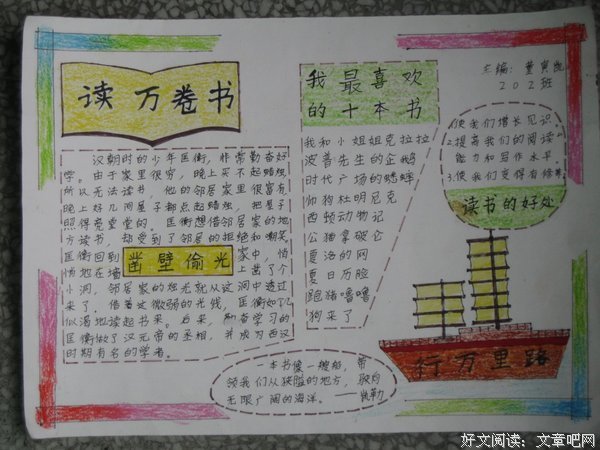 读万卷书
汉朝时的少年匡衡，非常勤奋好
学。由于家里很穷，晚上买不起蜡烛，
所以无法读书。他的邻居家里很富有，
晚上好几间屋子都点起蜡烛，把屋子
照得亮堂堂的。匡衡想借邻居家的地
方读书，却受到了邻居的拒绝和嘲笑。
匡衡回到家中，悄
悄地在墙上凿了个
凿壁偷光
小洞，邻居家的烛光就从这洞中透过
来了。借着这微弱的光线，匡衡如饥
似渴地读起书来。后来，勤奋学习的
匡衡做了汉元帝的丞相，并成为西汉
时期有名的学者。
我最喜欢
的十本书
我和小姐姐克拉拉
波普先生的企鹅
时代广场的蟋蟀
帅狗杜明尼克
西顿动物记
公猫拿破仑
夏洛的网
夏日历险
跑猪噜噜
狗来了
主编：董寅凯
202班
1.使我们增长见识
2.提高我们的阅读
能力和写作水平
3.使我们变得有修养
读书的好处
行万里路
一本书像一艘船，带
领我们从狭隘的地方，驶向
无限广阔的海洋。——凯勒
好文阅读：文章吧网